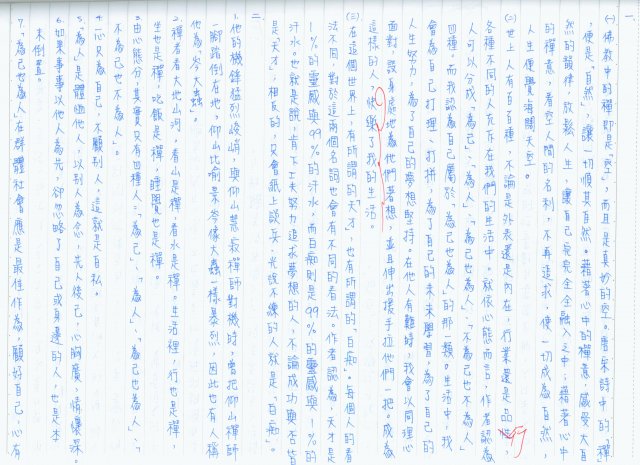 一、
㈠ 佛教中的禪即是「空」，而且是真妙的空。唐宋詩中的「禪」
，便是「自然」，讓一切順其自然。藉著心中的禪意，感受大自
然的韻律，放鬆人生，讓自己完完全全融入之中，藉著心中
的禪意，看空人間的名利，不再追求，使一切成為自然，
人生便覺海闊天空。
㈡ 世上人有百百種，不論是外表還是內在，行業還是品性，
各種不同的人充斥在我們的生活中。就依心態而言，作者認為
人可以分成「為己」、「為人」、「為己也為人」、「不為己也不為人」
四種。而我認為自己屬於「為己也為人」的那一類。生活中，我
會為自己打理、打拼，為了自己的未來學習，為了自己的
人生努力，為了自己的夢想堅持。在他人有難時，我會以同理心
面對，設身處地為他們著想，並且伸出援手拉他們一把。成為
這樣的人，快樂了我的生活。
㈢ 在這個世界上，有所謂的「天才」，也有所謂的「白痴」。每個人的看
法不同，對於這兩個名詞也會有不同的看法。作者認為，天才是
1%的靈感與99%的汗水，而白痴則是99%的靈感與1%的
汗水。也就是說，肯下工夫努力追求夢想的人，不論成功與否皆
是「天才」，相反的，只會紙上談兵，光說不練的人就是「白痴」。
二、
1. 他的機鋒猛烈峻峭，與仰山慧寂禪師對機時，曾把仰山禪師
一腳踏倒在地，仰山比喻景岑像大蟲一樣暴烈，因此也有人稱
他為「岑大蟲」。
2. 禪者看大地山河，看山是禪，看水是禪。生活裡，行也是禪
，坐也是禪，吃飯是禪，睡覺也是禪。
3. 由心態分，其實只有四種人：「為己」、「為人」、「為己也為人」、「
不為己也不為人」。
4. 心只為自己，不顧別人，這就是自私。
5. 為人，是體恤他人，以別人為念，先人後己，心胸廣，情懷深。
6. 如果事事以他人為先，卻忽略了自己或身邊的人，也是本
末倒置。
7. 「為己也為人」在群體社會應是最佳作為，顧好自己，心有